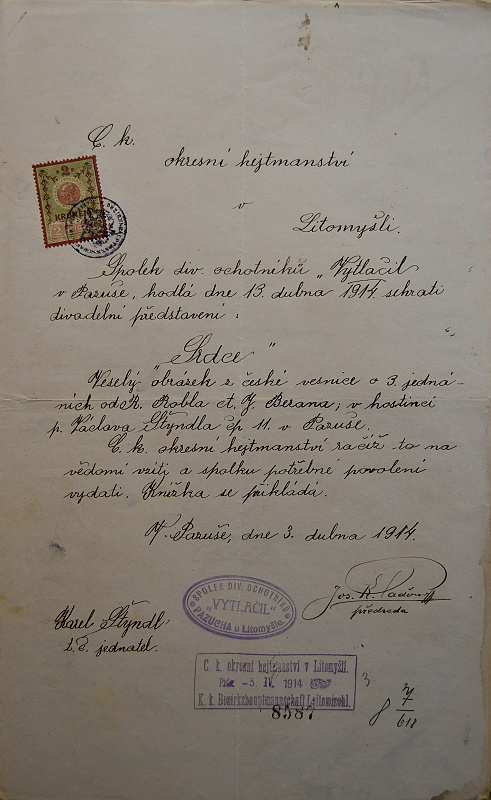 C. k.
okresní hejtmanství
v
Litomyšli.
2
KRONEN
Spolek div. ochotníků „Vytlačil
v Pazuše, hodlá dne 13. dubna 1914. sehrati
divadelní představení :
„Srdce"
Veselý obrázek z české vesnice o 3. jedná-
ních od K. Robla a J. Berana; v hostinci
p. Václava Štyndla čp 11. v Pazuše.
C. k. okresní hejtmanství račiž to na
vědomí vzíti a spolku potřebné povolení
vydati. Knížka se přikládá.
V. Pazuše, dne 3. dubna 1914.
Jos. K.
předseda
SPOLEK DIV. OCHOTNÍKŮ
„VYTLAČIL"
PAZUCHA u Litomyšle.
Karel Štyndl
t. č. jednatel.
C. k. okresní hejtmanství v Litomyšli.
-5. IV. 1914
K. k. Bezirkshauptmannschaft Leitomischl.
8587
3
8